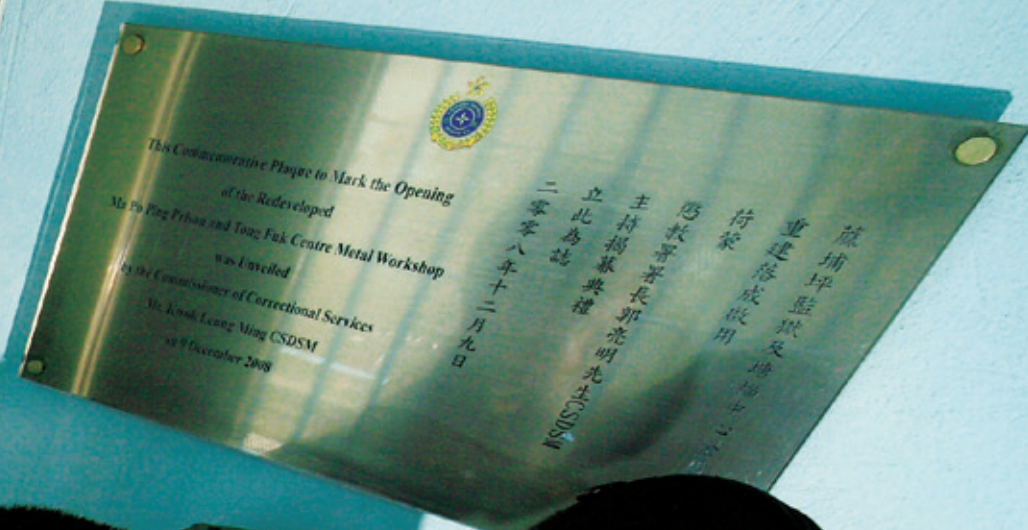 This Commemorative Plaque to Mark the Opening
of the Redeveloped
Ma Po Ping Prison and Tong Fuk Centre Metal Workshop
was Unveiled
by the Commissioner of Correctional Services
Mr. Kwok Leung Ming CSDSM
on 9 December 2008
蔴埔坪監獄及塘福中心
重建落成啟用
荷蒙
懲教署署長郭亮明先生CSDSM
主持揭幕典禮
立此為誌
二零零八年十二月九日